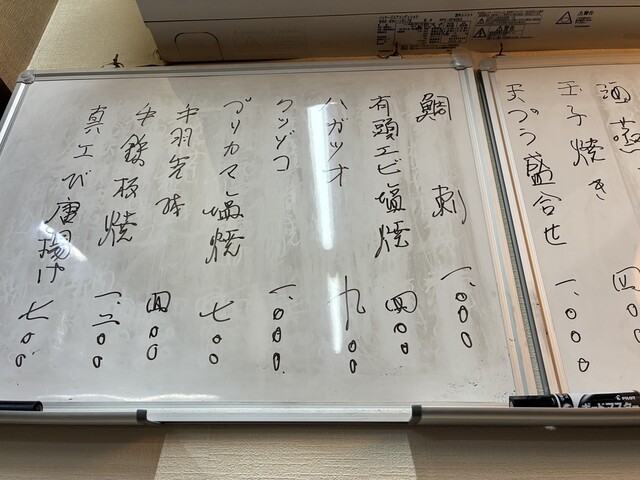 酒蒸
玉子焼き 四
天プラ盛合せ 一.〇〇〇
鯛 刺 一.〇〇〇
有頭エビ塩焼 四〇〇
ハガツオ 九〇〇
クツゾコ 一.〇〇〇.
ブリカマ塩焼 七〇〇
手羽先 四〇〇
牛鉄板焼 一.二〇〇
真エび唐揚げ 七〇〇.
PILOT
ボードマスター